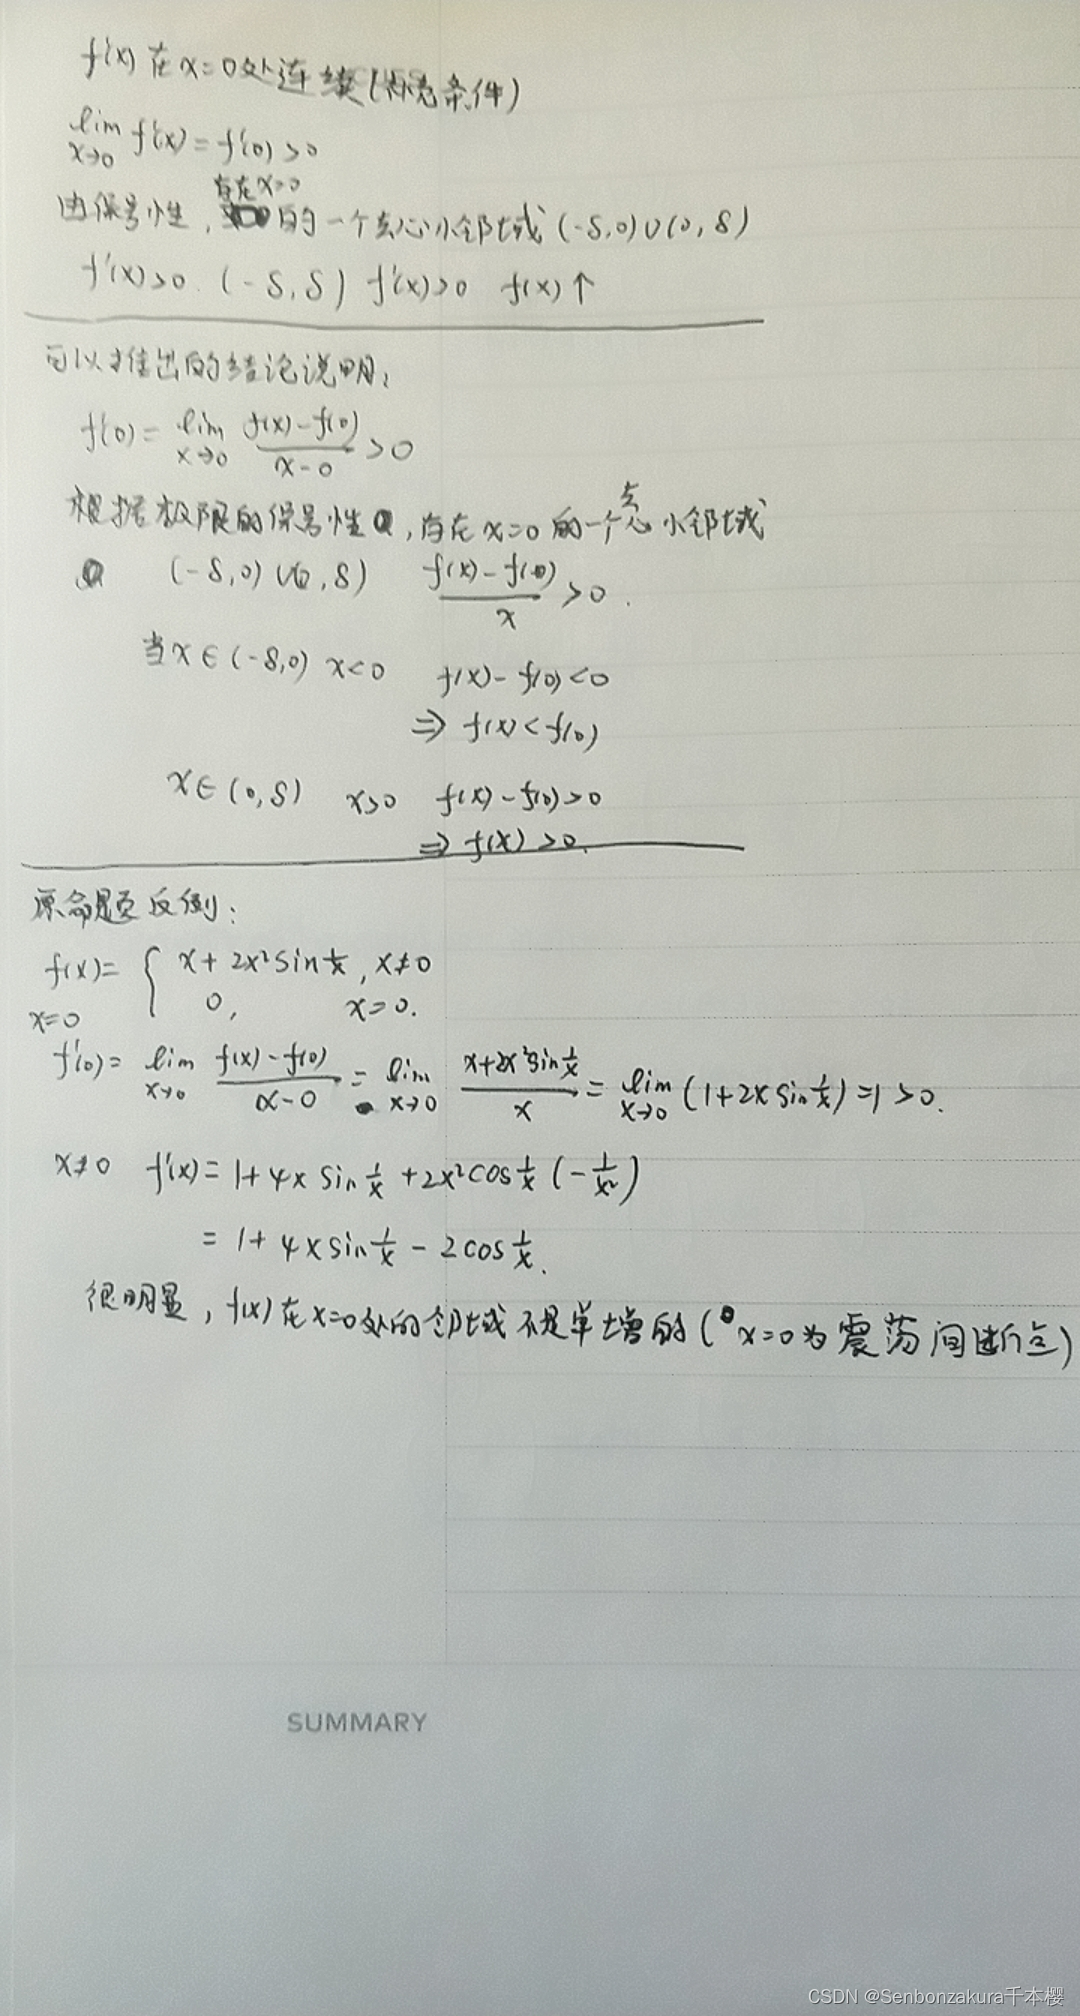 f'(x) 在 x=0 处连续 (补充条件)
lim x→0 f'(x) = f'(0) > 0
存在 x=0
由保号性, 的一个去心小邻域 (-δ,0)∪(0,δ)
f'(x)>0. (-δ,δ) f'(x)>0 f(x)↑
可以推出的结论说明:
f'(0) = lim x→0 (f(x)-f(0))/(x-0) > 0
根据极限的保号性, 存在 x=0 的一个去心小邻域
(-δ,0)∪(0,δ) (f(x)-f(0))/x > 0.
当 x∈(-δ,0) x<0 f(x)-f(0)<0
⇒ f(x)<f(0)
x∈(0,δ) x>0 f(x)-f(0)>0
⇒ f(x)>0.
原命题反例:
f(x)= { x+2x²sin1/x, x≠0
0, x=0.
x=0
f'(0) = lim x→0 (f(x)-f(0))/(x-0) = lim x→0 (x+2x²sin1/x)/x = lim x→0 (1+2x sin1/x) = 1 > 0.
x≠0 f'(x) = 1+4x sin1/x + 2x²cos1/x (-1/x²)
= 1+4x sin1/x - 2cos1/x.
很明显, f(x)在x=0处的邻域不是单增的 (x=0为震荡间断点)
SUMMARY
CSDN @Senbonzakura千本樱